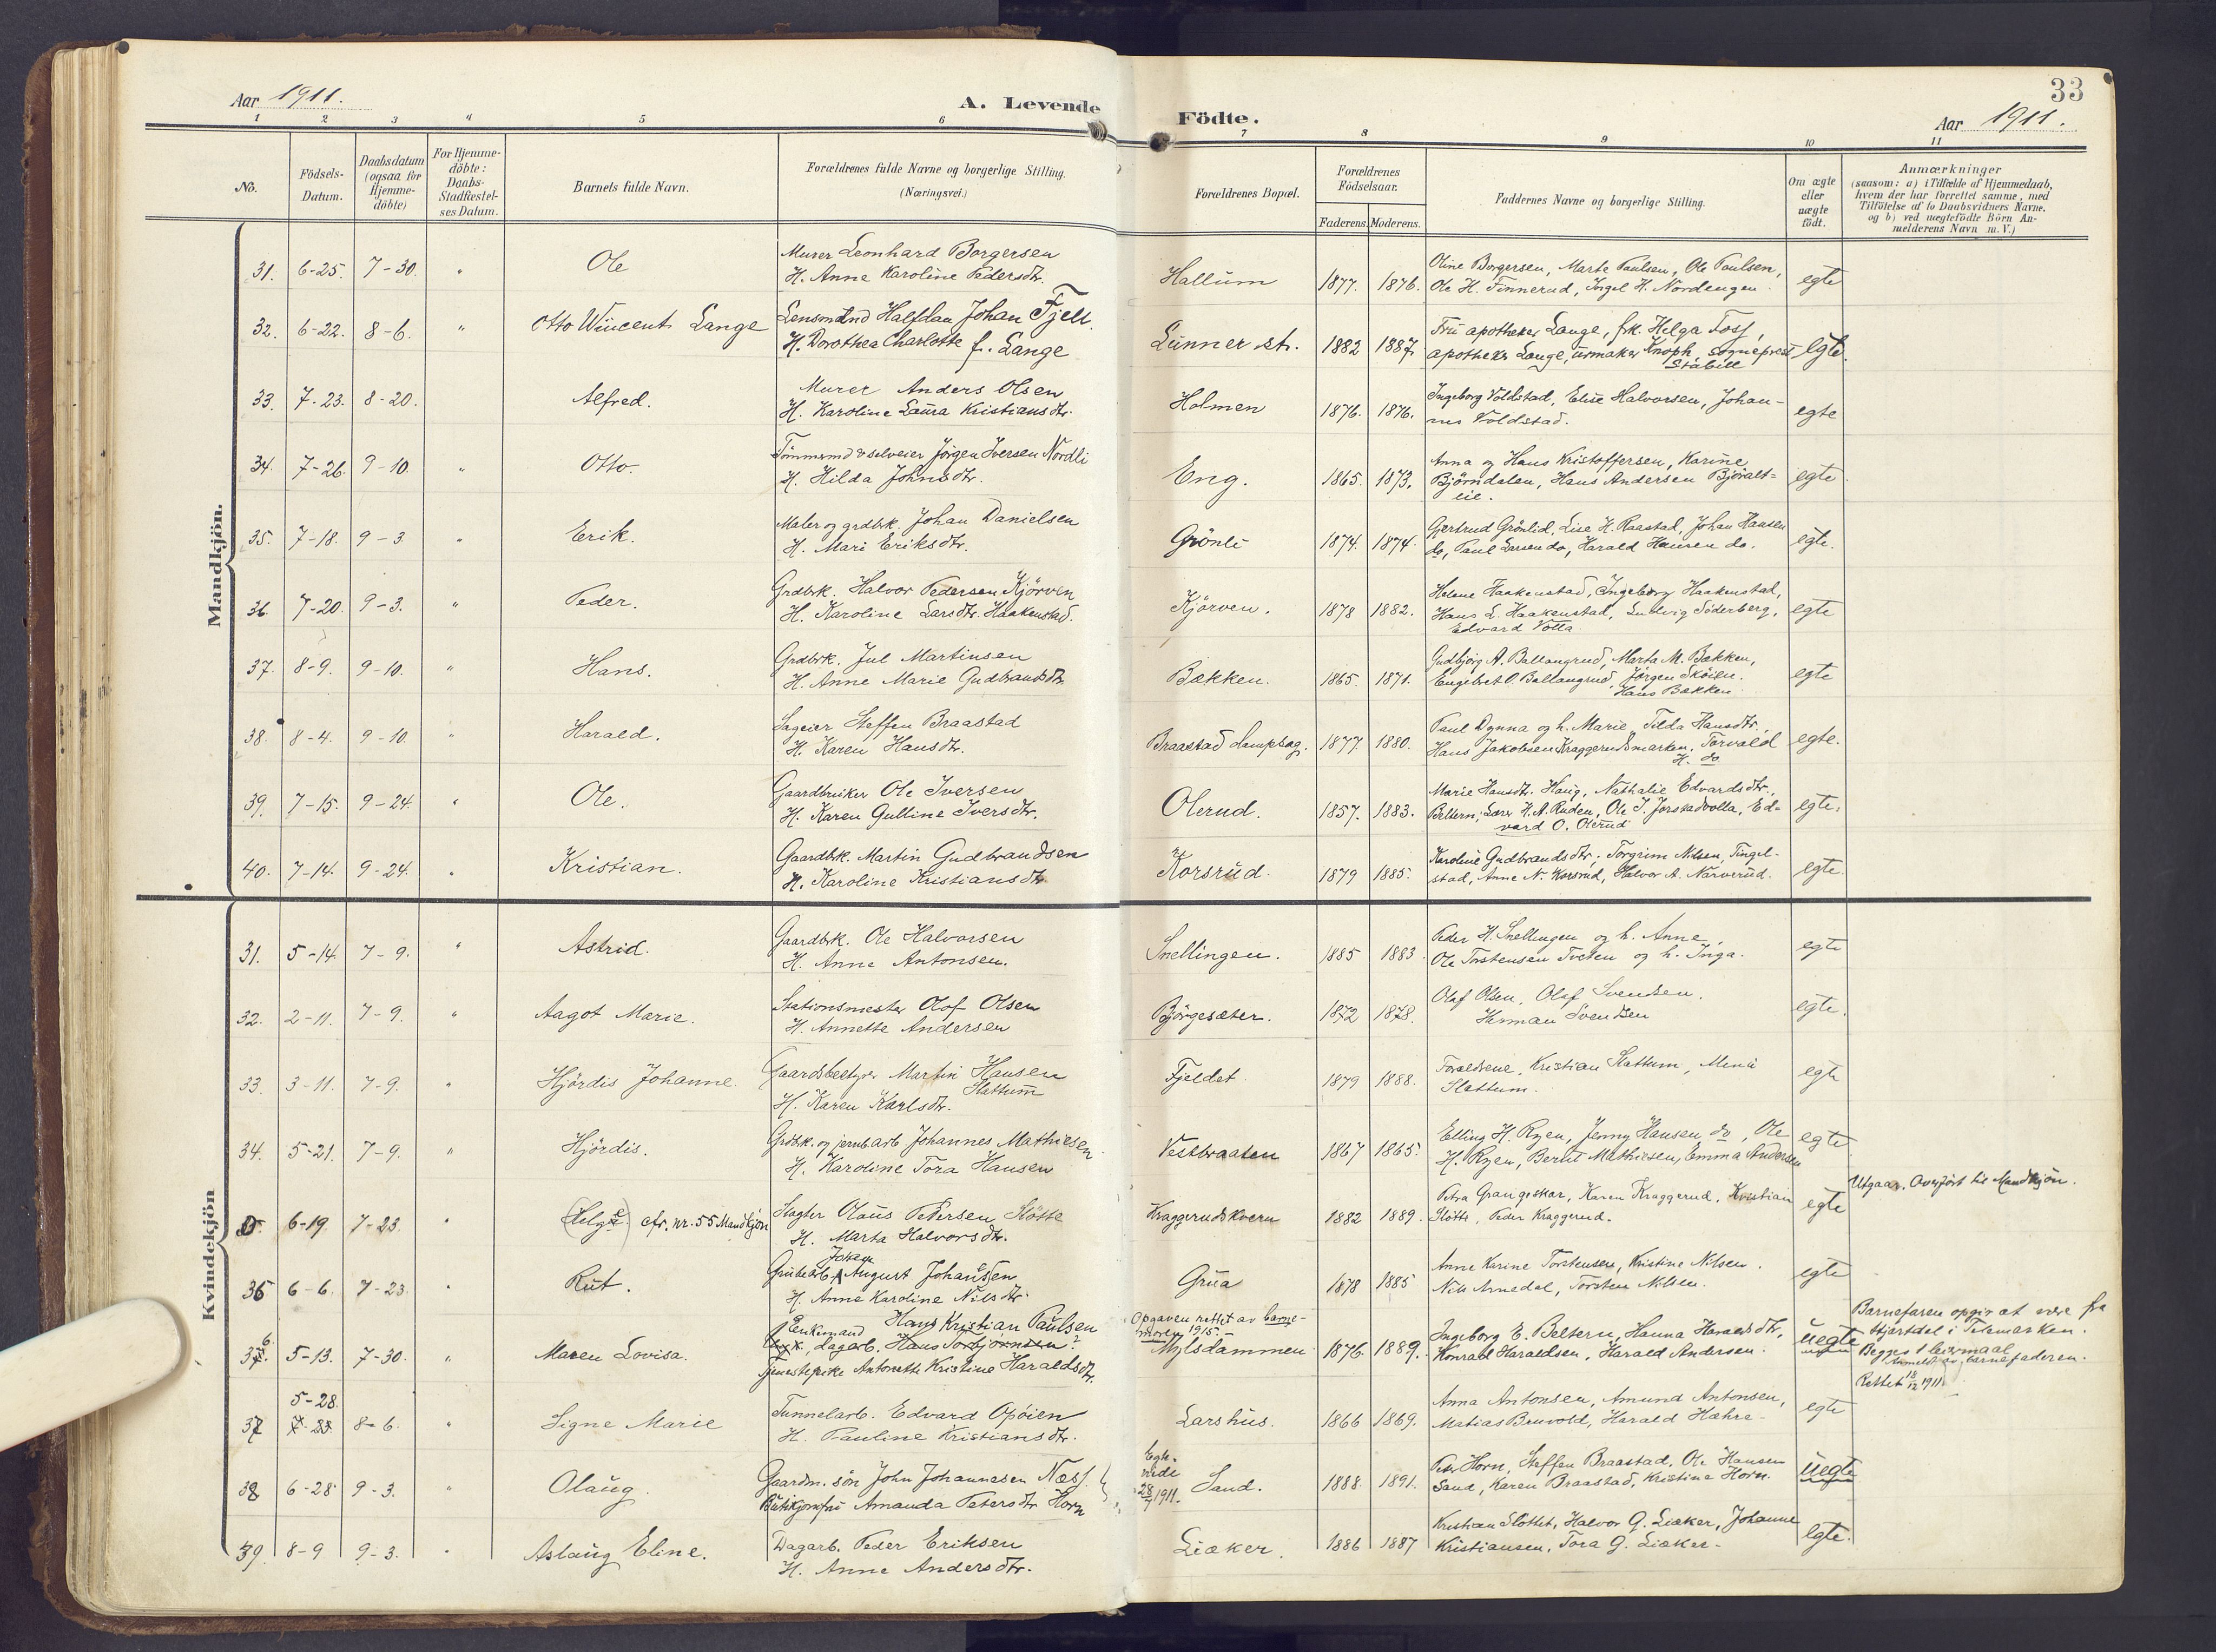 33
Aar 1911. A. Levende Födte. Aar 1911.
1 2 3 4 5 6 7 8 9 10 11
No. Födsels-Datum. Daabsdatum (ogsaa for Hjemme-döbte) For Hjemme-döbte: Daabs-Stadfæstel-ses Datum. Barnets fulde Navn. Forældrenes fulde Navne og borgerlige Stilling. (Næringsvei.) Forældrenes Bopæl. Forældrenes Födselsaar. Faderens. Moderens. Faddernes Navne og borgerlige Stilling. Om ægte eller uægte födt. Anmærkninger (saasom: a) i Tilfælde af Hjemmedaab, hvem der har forrettet samme, med Tilföielse af to Daabsvidners Navne. og b) ved uægtefödte Börn An-melderens Navn m. V.)
Mandkjön.
31. 6-25. 7-30. " Ole Murer Leonhard Borgersen Hallum 1877. 1876. Oline Borgersen, Marte Paulsen, Ole Paulsen, egte
H. Anne Karoline Pedersdtr. Ole H. Finnerud, Ingel H. Nordengen.
32. 6-22. 8-6. " Otto Wincent Lange Lensmand Halfdan Johan Fjell. Lunner st. 1882 1887. Fru apotheker Lange, frk. Helga Foss, egte.
H. Dorothea Charlotte f. Lange apotheker Lange, urmaker Knoph, sogneprest
Stabell
33. 7-23. 8-20. Alfred. Murer Anders Olsen Holmen 1876. 1876. Ingeborg Voldstad, Elise Halvorsen, Johan- egte
H. Karoline Laura Kristiansdtr. nes Voldstad.
34. 7-26. 9-10. " Otto. Tömmermd & selveier Jörgen Iversen Nordli Eng. 1865. 1873. Anna og Hans Kristoffersen, Karine egte
H. Hilda Johnsdtr. Björndalen, Hans Andersen Björalt-
eie.
35. 7-18. 9-3. " Erik. Maler og grdbrk. Johan Danielsen Grönli 1874. 1874. Gjertrud Grönlid, Lise H. Raastad, Johan Hansen egte.
H. Mari Eriksdtr. do, Paul Larsen do, Harald Hansen do.
36. 7-20. 9-3. " Peder. Grdbrk. Halvor Pedersen Kjörven Kjörven. 1878 1882. Helene Haakenstad, Ingeborg Haakenstad, egte
H. Karoline Larsdtr. Haakenstad. Hans L. Haakenstad, Ludvig Söderberg,
Edvard Volla.
37. 8-9. 9-10. " Hans. Grdbrk. Jul Martinsen Bakken. 1865. 1871. Gudbjörg A. Ballangrud, Marta M. Bakken, egte
H. Anne Marie Gudbrandsdtr. Engebret O. Ballangrud, Jörgen Sköien.
Hans Bakken
38. 8-4. 9-10. " Harald. Sageier Steffen Braastad Braastad dampsag. 1877. 1880. Paul Dynna og h. Marie, Tilda Hansdtr., egte.
H. Karen Hansdtr. Hans Jakobsen Kraggerudsmarken, Torvald
H. do
39. 7-15. 9-24. " Ole. Gaardbruker Ole Iversen Olerud. 1857. 1883. Marie Hansdtr. Haug, Nathalie Edvardsdtr., egte.
H. Karen Gulline Iversdtr. Beltern, Lars H. A. Ruden, Ole J. Jorstadvolla, Ed-
vard O. Olerud
40. 7-14. 9-24. " Kristian. Gaardbk. Martin Gudbrandsen Korsrud. 1879 1885. Karoline Gudbrandsdtr., Torgrim Nilsen, Tingel- egte.
H. Karoline Kristiansdtr. stad, Anne N. Korsrud, Halvor A. Narverud.
Kvindekjön
31. 5-14. 7-9. " Astrid. Gaardbrk. Ole Halvorsen Snellingen. 1885 1883. Peder H. Snellingen og h. Anne, egte
H. Anne Antonsen. Ole Torstensen Tveten og h. Inga.
32. 2-11. 7-9. " Aagot Marie. Stationsmester Olof Olsen Bjørgesæter. 1872 1878. Olaf Olsen, Olaf Svendsen. egte.
H. Annette Andersen Herman Svendsen
33. 3-11. 7-9. " Hjördis Johanne. Gaardsbestyrer Martin Hansen Fjeldet 1879 1888. Forældrene, Kristian Slattum, Mina egte
Slattum
H. Karen Karlsdtr. Slattum.
34. 5-21. 7-9. " Hjördis. Grdbk. og jernbarb Johannes Mathiesen Vestbraaten 1867 1865. Elling H. Ryen, Jenny Hansen do, Ole egte
H. Karoline Tora Hansen H. Ryen, Bernt Mathiesen, Emma Andersen
6-19. 7-23. " (Helge) cfr. nr. 55 Mandkjön Slagter Olaus Petersen Slötte Kraggerudskvern 1882 1889. Petra Grangeskar, Karen Kraggerud, Kristian egte Utgaar. Overfört til Mandkjön.
H. Marta Halvorsdtr. Slötte, Peder Kraggerud.
35 6-6. 7-23. " Rut. Grubearb. Johan August Johansen Grua 1878 1885 Anne Karine Torstensen, Kristine Nilsen. egte
H. Anne Karoline Nilsdtr. Nils Arnedal, Torsten Nilsen.
36. 5-13. 7-30. " Maren Lovisa. Enkemand Hans Kristian Paulsen Opgaven rettet av barne-moren 1915. Barnefaren opgir at være fra
Ungk., dagarb. Hans Torbjörnsen? Mylsdammen 1876. 1889. Ingeborg E. Beltern, Hanna Haraldsdtr, uegte Hjartdal i Telemarken.
Tjenestepike Antonette Kristine Haraldsdtr. Konrad Haraldsen, Harald Andersen. Begges 1 leiermaal
Anmeldt av barnefaderen.
Rettet 18/12 1911
5-28.
37 7-23. 8-6. " Signe Marie Tunnelarb. Edvard Opöien Larshus. 1866 1869. Anna Antonsen, Amund Antonsen, egte
H. Pauline Kristiansdtr. Matias Bruvold, Harald Hæhre.
38 6-28 9-3. " Olaug. Gaardm. sön John Johannesen Næss. Egte. vide 28/7 1911. Sand. 1888. 1891. Peter Horn, Steffen Braastad, Ole Hansen uegte
Butikjomfru Amanda Petersdtr Horn Sand, Karen Braastad, Kristine Horn.
39. 8-9 9-3. " Aslaug Eline. Dagarb. Peder Eriksen Liæker. 1886 1887 Kristian Slottet, Halvor G. Liæker, Johanne egte.
H. Anne Andersdtr. Kristiansen, Tora G. Liæker.